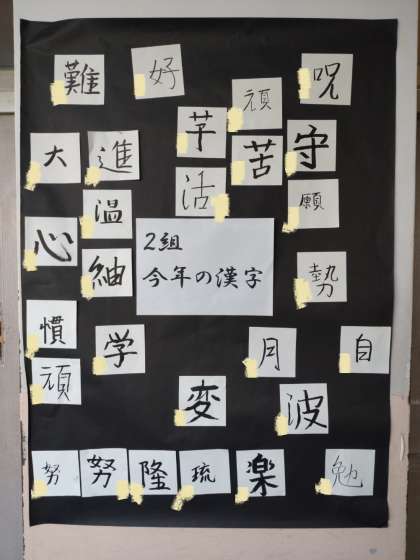 難
好
頑
呪
芋
大
進
苦
守
活
温
願
心
紬
2組
今年の漢字
勢
慣
学
月
自
頑
変
波
努
努
隆
琉
楽
勉